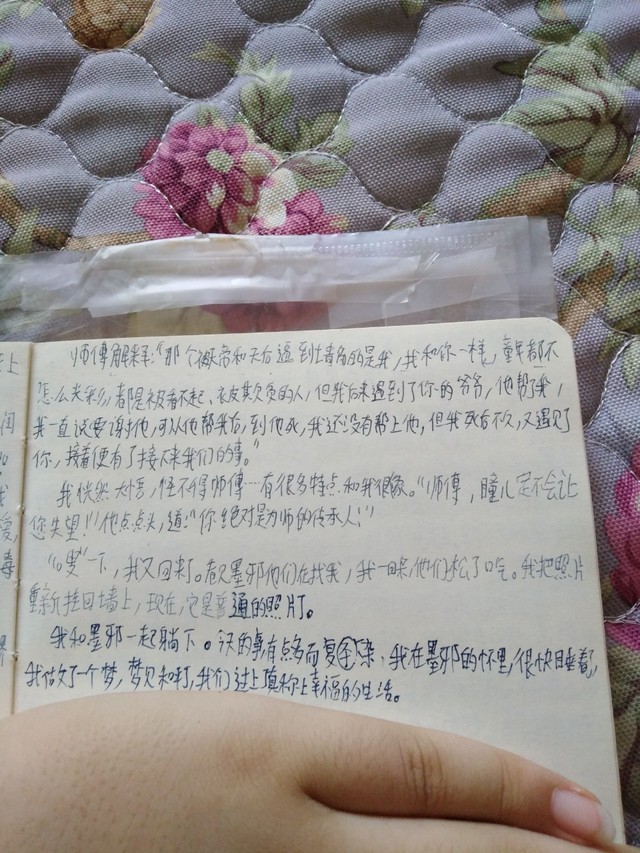 上
师傅解释:"那个被帝和天后遇到堵的是我,我和你一样,童年都不
怎么光彩,都是被看不起、被欺负的人,但我后来遇到了你的爷爷,他帮我,
闰
我一直说要谢他,可从他帮我后,到他死,我还没有帮上他,但我死后不久,又遇见了
你,接着便有了接下来我们的事。"
我
我恍然大悟,怪不得师傅…有很多特点和我很像。"师傅,瞳儿定不会让
爱,
您失望!"他点点头,道:"你绝对是为师的传承人!"
毒
"嗖"一下,我又回来了。只见墨邪他们在找我,我一回来,他们松了口气。我把照片
重新挂回墙上,现在,它是普通的照片了。
我和墨邪一起躺下。今天的事有点多而复杂,我在墨邪的怀里,很快睡着了,
我做了一个梦,梦见和平了,我们过上真称上幸福的生活。